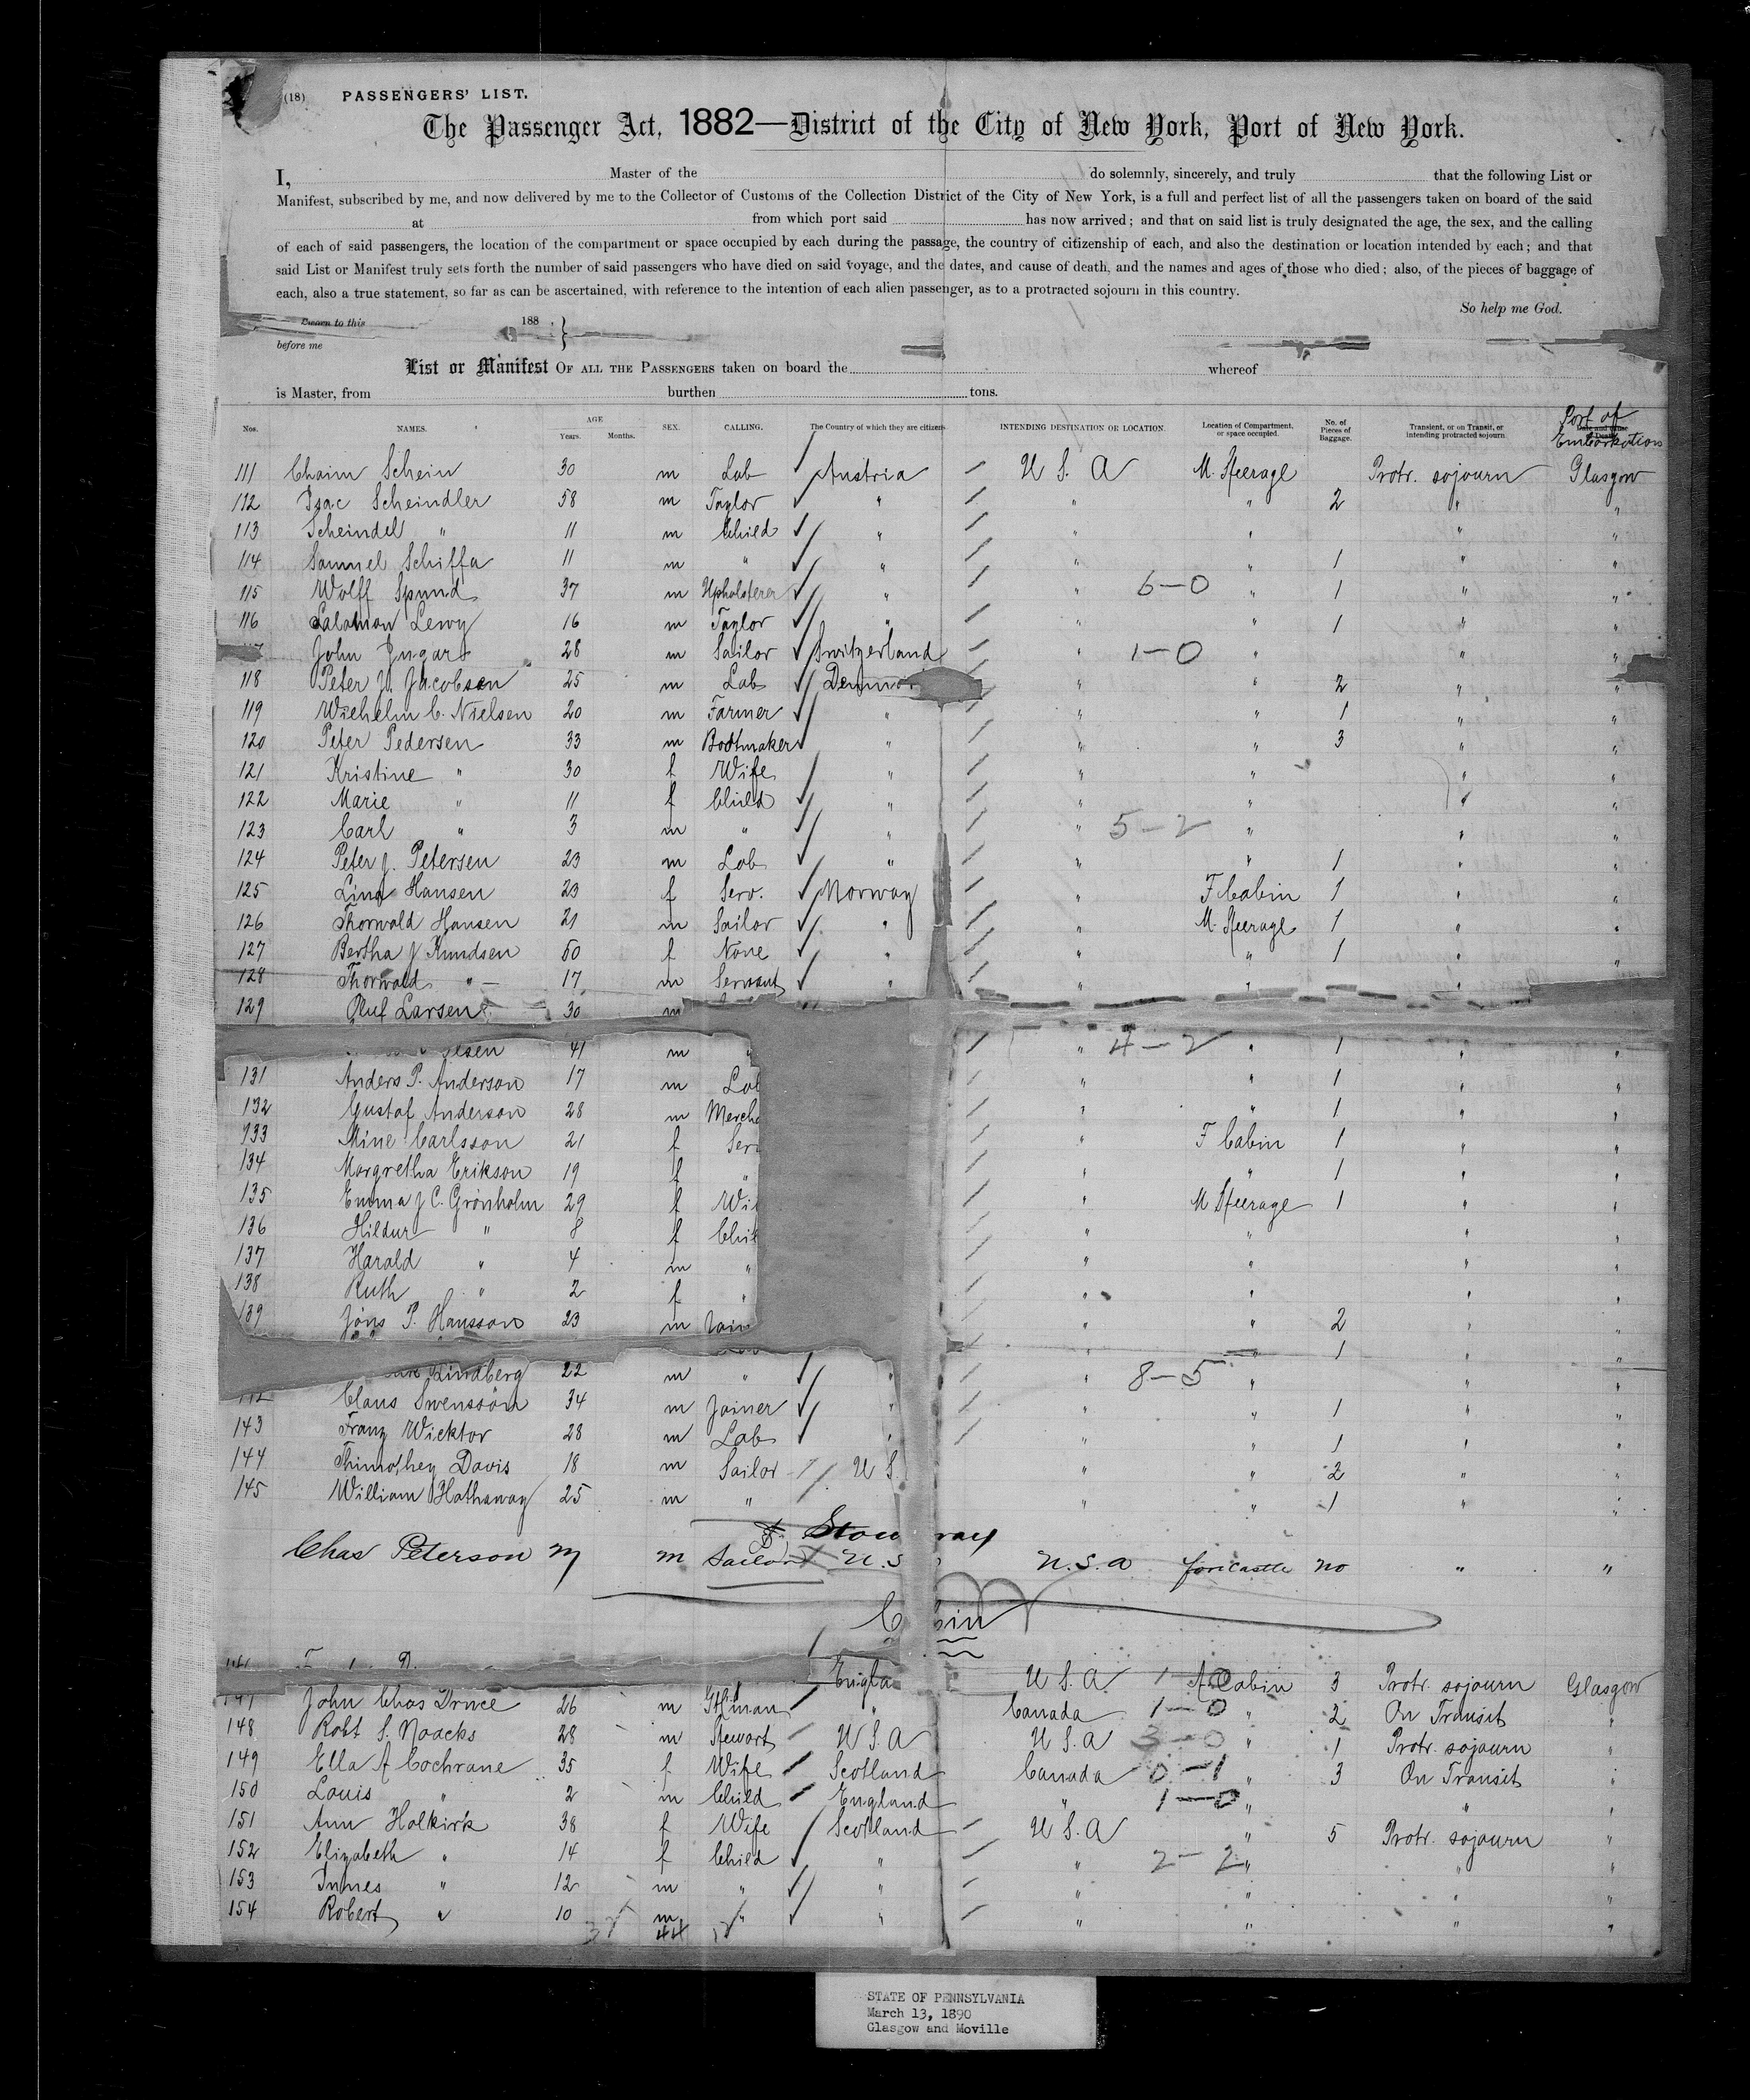 (18) PASSENGERS' LIST.
The Passenger Act, 1882—District of the City of New York, Port of New York.
I, Master of the do solemnly, sincerely, and truly that the following List or
Manifest, subscribed by me, and now delivered by me to the Collector of Customs of the Collection District of the City of New York, is a full and perfect list of all the passengers taken on board of the said
at from which port said has now arrived; and that on said list is truly designated the age, the sex, and the calling
of each of said passengers, the location of the compartment or space occupied by each during the passage, the country of citizenship of each, and also the destination or location intended by each; and that
said List or Manifest truly sets forth the number of said passengers who have died on said voyage, and the dates, and cause of death, and the names and ages of those who died; also, of the pieces of baggage of
each, also a true statement, so far as can be ascertained, with reference to the intention of each alien passenger, as to a protracted sojourn in this country.
So help me God.
Sworn to this 188 , }
before me
List or Manifest OF ALL THE PASSENGERS taken on board the whereof
is Master, from burthen tons.
Nos. NAMES. AGE Years. Months. SEX. CALLING. The Country of which they are citizens. INTENDING DESTINATION OR LOCATION. Location of Compartment, or space occupied. No. of Pieces of Baggage. Transient, or on Transit, or intending protracted sojourn Port of Embarkation
111 Chaim Schein 30 m Lab Austria U S. A M. Steerage Protr. sojourn Glasgow
112 Isac Scheindler 58 m Taylor " " " 2 " "
113 Scheindel " 11 m Child " " " " "
114 Samuel Schiffa 11 m " " " " 1 " "
115 Wolff Spund 37 m Upholsterer " " 6—0 " 1 " "
116 Salomon Lewy 16 m Taylor " " " 1 " "
John 28 m Sailor Switzerland " 1—0 " " "
118 Peter J. Jacobsen 25 m Lab Denmar " " 2 " "
119 Wilhelm C. Nielsen 20 m Farmer " " " 1 " "
120 Peter Pedersen 33 m Bootmaker " " " 3 " "
121 Kristine " 30 f Wife " " " " "
122 Marie " 11 f Child " " " " "
123 Carl " 3 m " " " 5—2 " " "
124 Peter J. Petersen 23 m Lab " " " 1 " "
125 Lina Hansen 23 f Serv. Norway " F Cabin 1 " "
126 Thorwald Hansen 21 m Sailor " " M. Steerage 1 " "
127 Bertha J Knudsen 50 f None " " " 1 " "
128 Thorwald " 17 m Servant " " " " "
129 Oluf Larsen 30 m
41 m " 4—2 " 1 " "
131 Anders P. Anderson 17 m Lab " " 1 " "
132 Gustaf Anderson 28 m Mercha " " 1 " "
133 Mine Carlsson 21 f Ser " F Cabin 1 " "
134 Margretha Erikson 19 f " " " 1 " "
135 Emma J C. Grönholm 29 f Wi " M Steerage 1 " "
136 Hildur " 8 f Chil " " " "
137 Harald " 4 m " " " " "
138 Ruth " 2 f " " " " "
139 Jöns P. Hansson 23 m " " 2 " "
" 1 " "
Lindberg 22 m " " " 8—5 " " "
Claus Swensson 34 m Joiner " " " 1 " "
143 Franz Wicktor 28 m Lab " " " 1 " "
144 Thimothey Davis 18 m Sailor U S. " " 2 " "
145 William Hathaway 25 m " " " 1 " "
Stow way
Chas Peterson m Sailor U.S U.S.A forecastle no " "
C bin
Engla U S. A 1—0 Cabin 3 Protr. sojourn Glasgow
John Chas Druce 26 m Gtlman " Canada 1—0 " 2 On Transit "
148 Robt S. Noacks 28 m Stewart U S. A U S. A 3—0 " 1 Protr. sojourn "
149 Ella A Cochrane 35 f Wife Scotland Canada 0—1 " 3 On Transit "
150 Louis " 2 m Child England " 1—0 " " "
151 Ann Halkirk 38 f Wife Scotland U S. A " 5 Protr. sojourn "
152 Elizabeth " 14 f Child " " 2—2 " " "
153 Innes " 12 m " " " " " "
154 Robert " 10 m " " " " " "
44
STATE OF PENNSYLVANIA
March 13, 1890
Glasgow and Moville